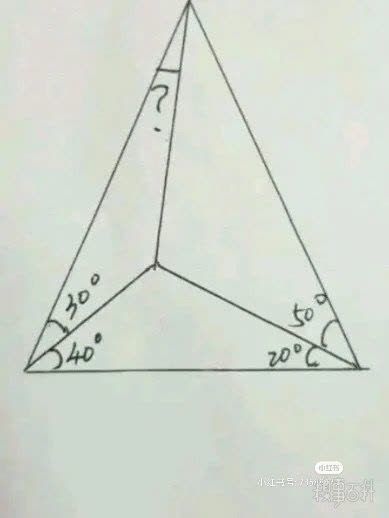 ?
30°
40°
50°
20°
小红书
小红书号: